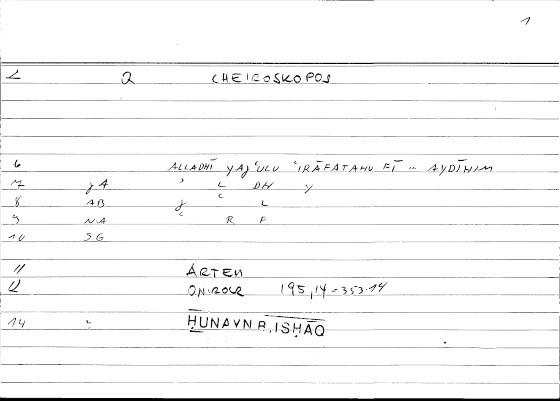 1
2 Q CHEIROSKOPOS
6 ALLADHĪ YAǧʿULU ʿIRĀFATAHU FĪ ... AYDĪHIM
7 ǧA ʾ L DH Y
8 AB ǧ ʿ L
9 NA ʿ R F
10 SG
11 ARTEM
12 ONIROCR 195,14 = 353.14
14 " ḤUNAYN B. ISḤĀQ